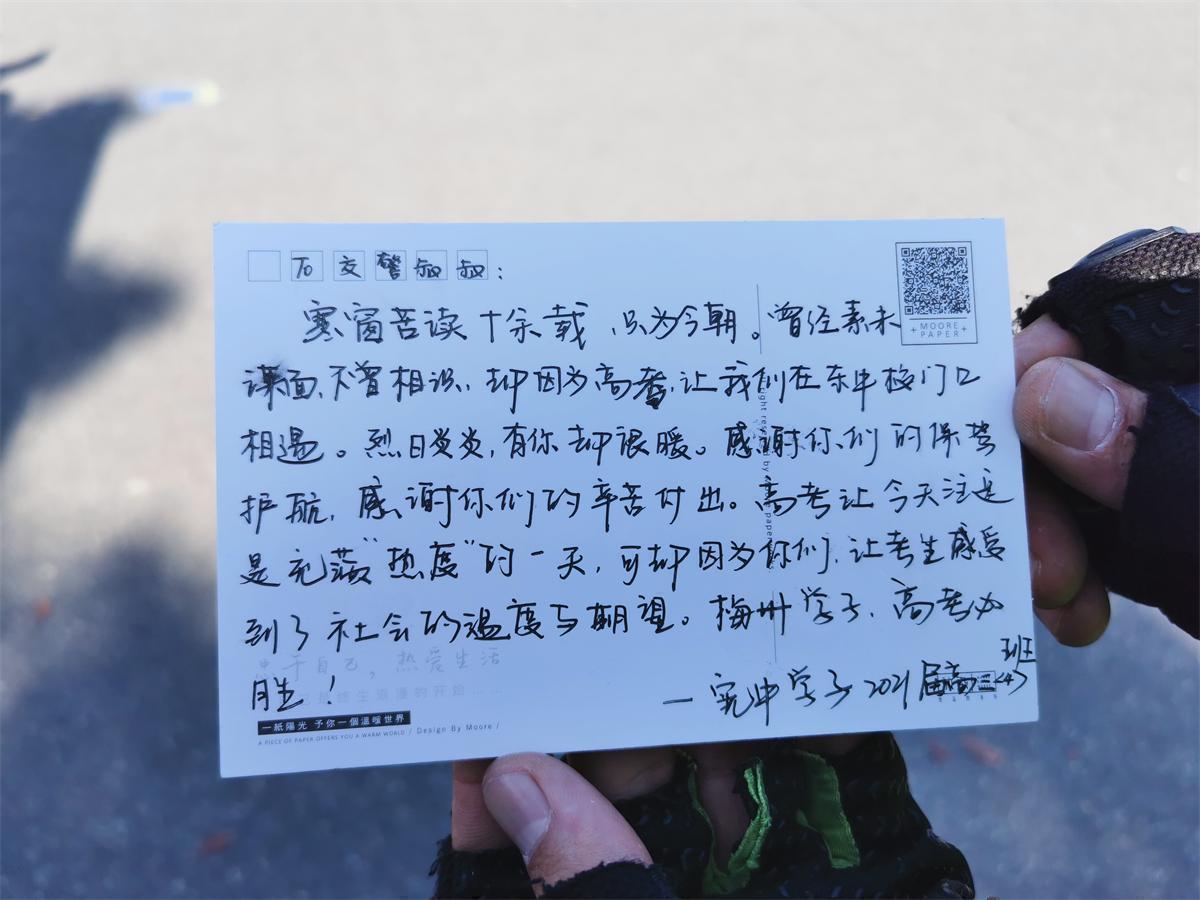 To 交警叔叔:
寒窗苦读十余载,只为今朝。曾经素未
谋面,不曾相识,却因为高考,让我们在东中校门口
相遇。烈日炎炎,有你却很暖。感谢你们的保驾
护航,感谢你们的辛苦付出。高考让今天注定
是充满“热度”的一天,可却因为你们,让考生感受
到了社会的温度与期望。梅州学子,高考必
胜!
—宪中学子2021届高三<4>班
忠于自己,热爱生活
是终生浪漫的开始……
一紙陽光 予你一個溫暄世界
/ Design By Moore /
A PIECE OF PAPER OFFERS YOU A WARM WORLD
+ MOORE +
PAPER